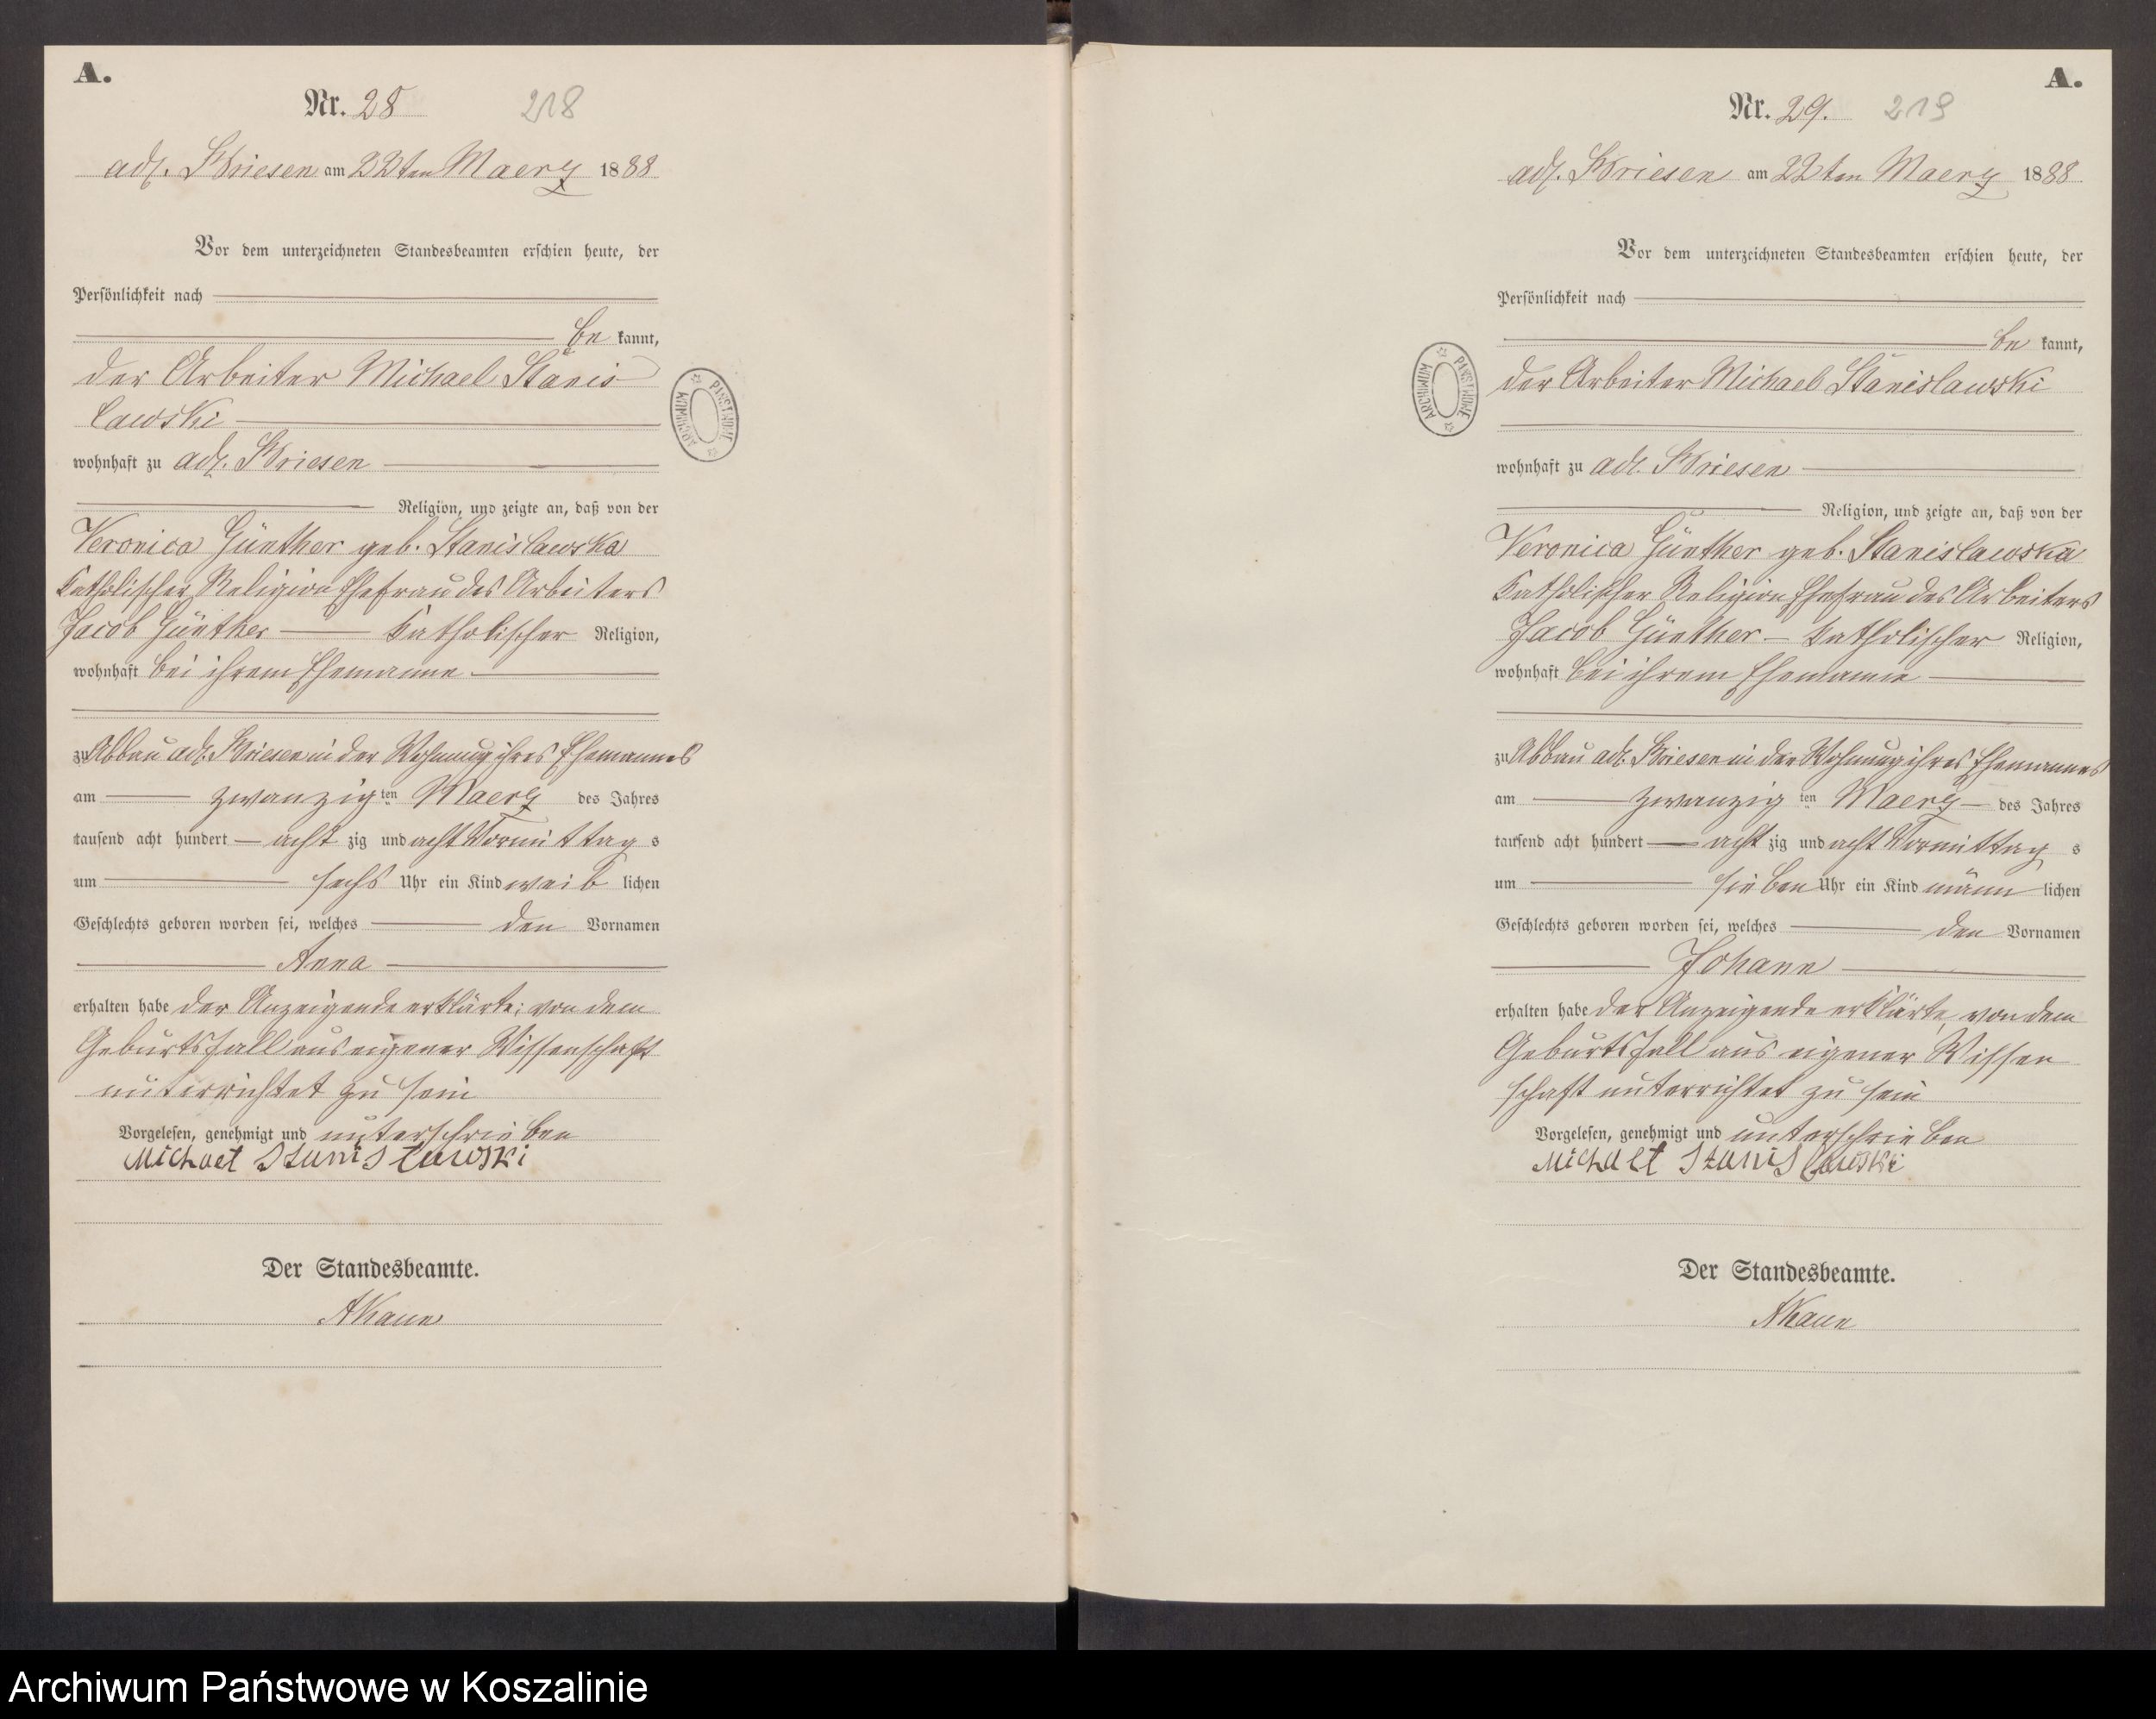 A.
Nr. 28 218
adl. Briesen am 22ten Maerz 1888
Vor dem unterzeichneten Standesbeamten erschien heute, der
Persönlichkeit nach
be kannt,
der Arbeiter Michael Stanis-
lawski
wohnhaft zu adl. Briesen
Religion, und zeigte an, daß von der
Veronica Günther geb. Stanislawska
katholischer Religion Ehefrau des Arbeiters
Jacob Günther katholischer Religion,
wohnhaft bei ihrem Ehemanne
zu Abbau adl. Briesen in der Wohnung ihres Ehemannes
am zwanzig ten Maerz des Jahres
tausend acht hundert acht zig und acht Vormittag s
um sechs Uhr ein Kind weib lichen
Geschlechts geboren worden sei, welches den Vornamen
Anna
erhalten habe der Anzeigende erklärte; von dem
Geburtsfall aus eigener Wissenschaft
unterrichtet zu sein
Vorgelesen, genehmigt und unterschrieben
Michaet Stanisławski
Der Standesbeamte.
ARCHIWUM PAŃSTWOWE
A.
Nr. 29. 219
adl. Briesen am 22ten Maerz 1888
Vor dem unterzeichneten Standesbeamten erschien heute, der
Persönlichkeit nach
be kannt,
der Arbeiter Michael Stanislawski
wohnhaft zu adl. Briesen
Religion, und zeigte an, daß von der
Veronica Günther geb. Stanislawska
katholischer Religion Ehefrau des Arbeiters
Jacob Günther katholischer Religion,
wohnhaft bei ihrem Ehemanne
zu Abbau adl. Briesen in der Wohnung ihres Ehemannes
am zwanzig ten Maerz des Jahres
tausend acht hundert acht zig und acht Vormittag s
um sieben Uhr ein Kind männ lichen
Geschlechts geboren worden sei, welches den Vornamen
Johann
erhalten habe der Anzeigende erklärte, von dem
Geburtsfall aus eigener Wissen
schaft unterrichtet zu sein
Vorgelesen, genehmigt und unterschrieben
Michaet Stanislawski
Der Standesbeamte.
ARCHIWUM PAŃSTWOWE
Archiwum Państwowe w Koszalinie